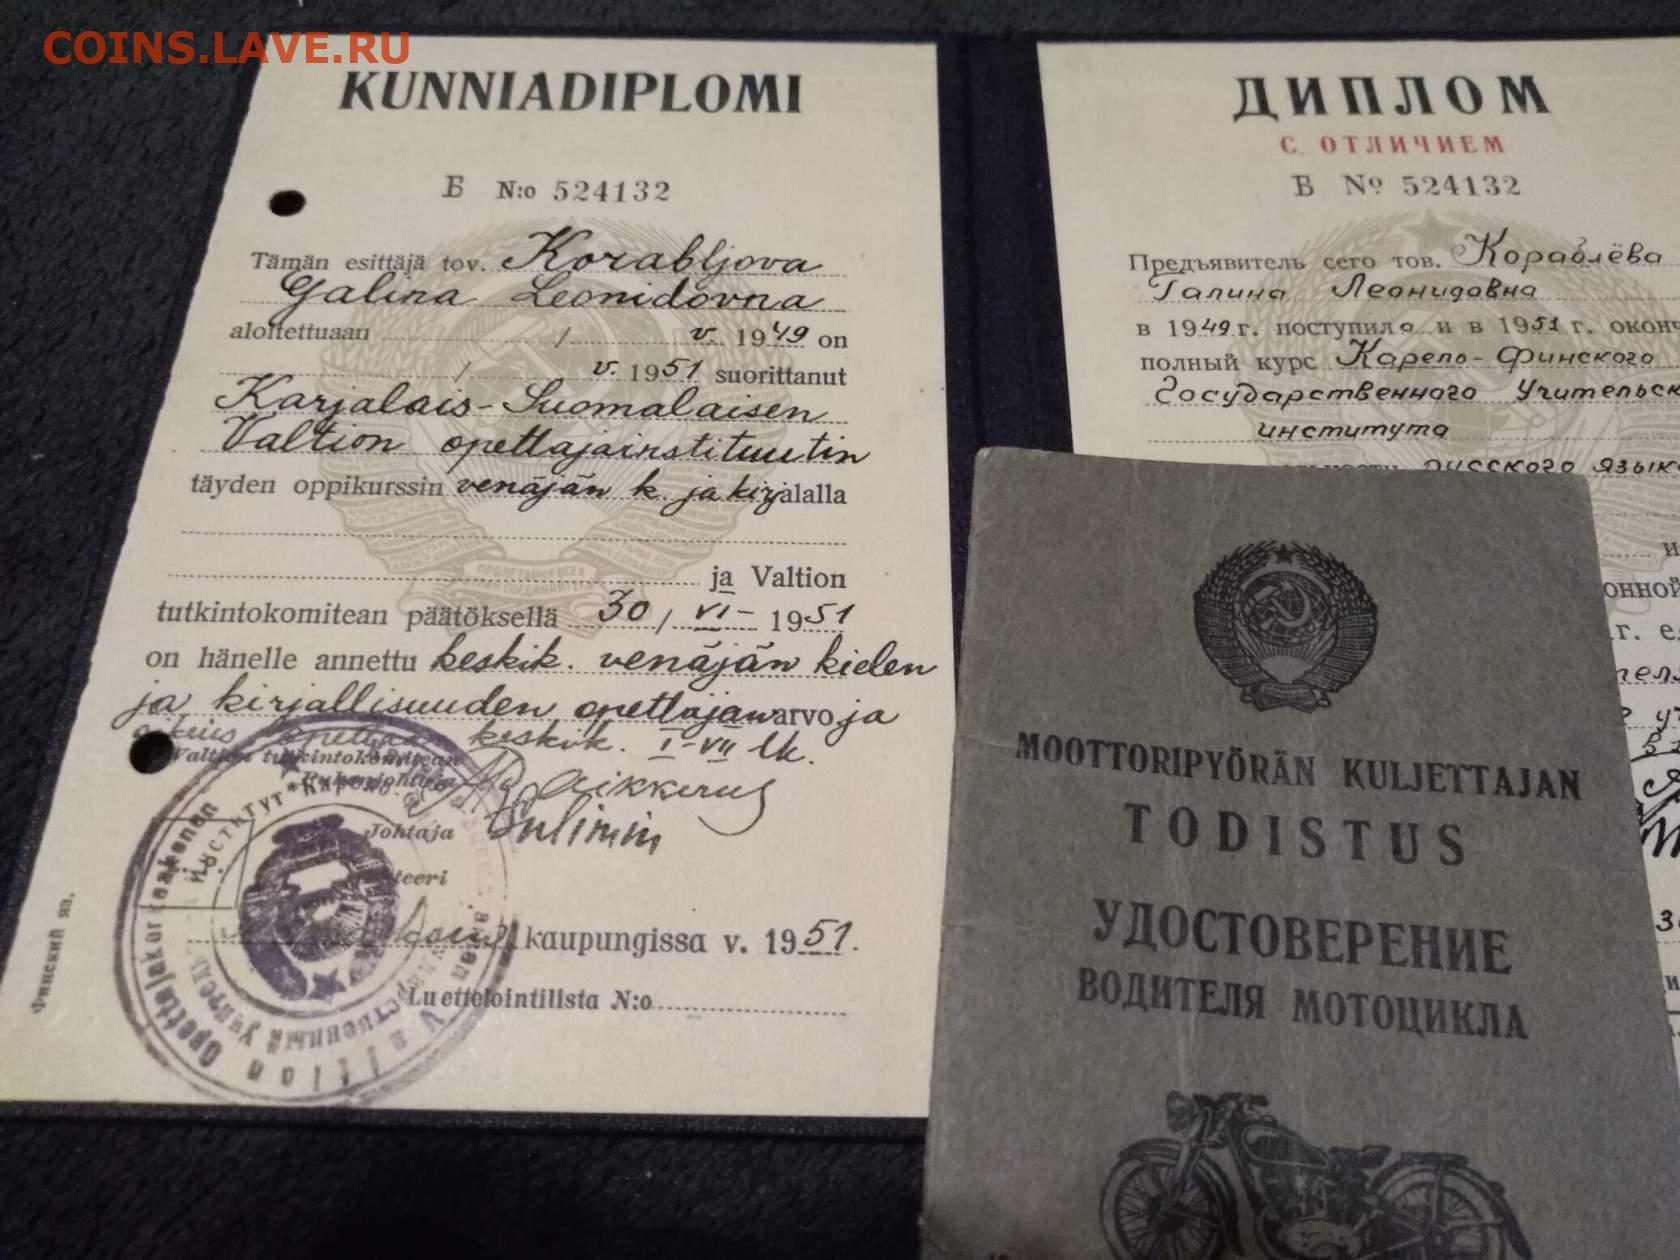 COINS.LAVE.RU
KUNNIADIPLOMI
Б N:o 524132
Tämän esittäjä tov. Korabljova
Galina Leonidovna
aloitettuaan / v. 1949 on
/ v. 1951 suorittanut
Karjalais-Suomalaisen
Valtion opettajainstituutin
täyden oppikurssin venäjän k. ja kirj alalla
ja Valtion
tutkintokomitean päätöksellä 30/VI- 1951
on hänelle annettu keskik. venäjän kielen
ja kirjallisuuden opettajan arvo ja
oikeus opettaa keskik. I-VII lk.
Valtion tutkintokomitean
Puheenjohtaja
Johtaja
teeri
kaupungissa v. 1951.
Luettelointilista N:o
Финский яз.
ДИПЛОМ
С ОТЛИЧИЕМ
Б № 524132
Предъявитель сего тов. Кораблёва
Галина Леонидовна
в 1949 г. поступила и в 1951 г. оконч
полный курс Карело-Финского
Государственного Учительск
института
русского язык
и
онной
г.
MOOTTORIPYÖRÄN KULJETTAJAN
TODISTUS
УДОСТОВЕРЕНИЕ
ВОДИТЕЛЯ МОТОЦИКЛА